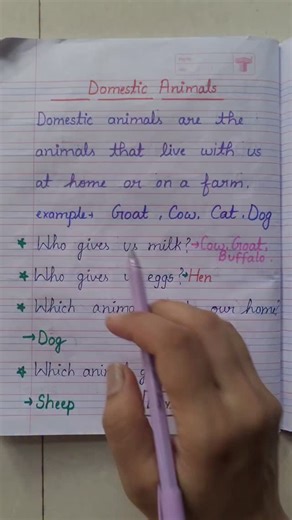 Domestic Animals
Domestic animals are the
animals that live with us
at home or on a farm.
example→ Goat, Cow, Cat, Dog
★ Who gives us milk? →Cow, Goat,
Buffalo.
★ Who gives eggs? →Hen
★ Which our home
→ Dog
★ Which
→ Sheep